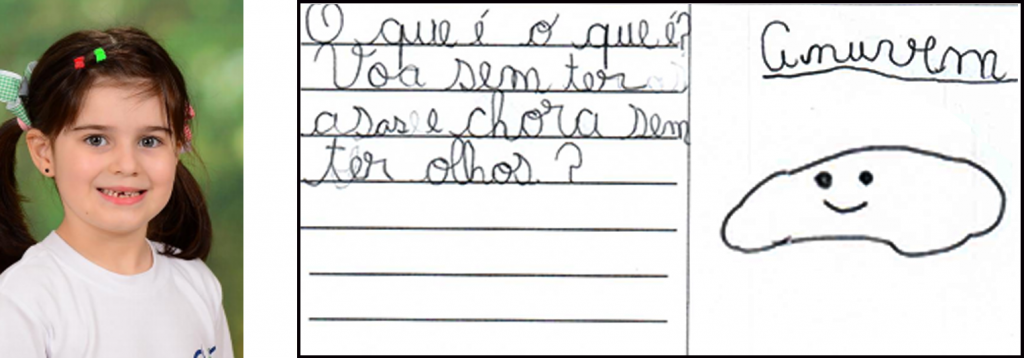 O que é o que é?
Voa sem ter
asas e chora sem
ter olhos?
Anuvem